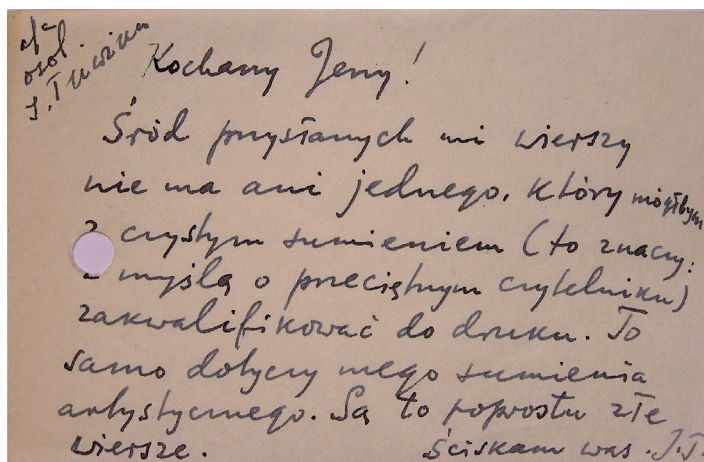 a/a
osob.
J. Tuwima
Kochany Jerzy!
Śród przysłanych mi wierszy
nie ma ani jednego, który mógłbym
z czystym sumieniem (to znaczy:
z myślą o przeciętnym czytelniku)
zakwalifikować do druku. To
samo dotyczy mego sumienia
artystycznego. Są to poprostu złe
wiersze. Ściskam was. J.T.